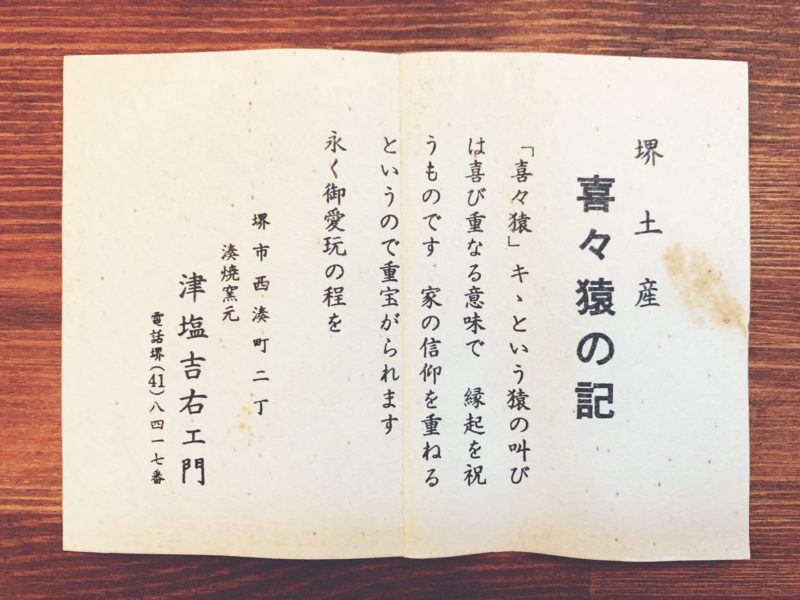 堺土産
喜々猿の記
「喜々猿」キヽという猿の叫び
は喜び重なる意味で 縁起を祝
うものです 家の信仰を重ねる
というので重宝がられます
永く御愛玩の程を
堺市西湊町二丁
湊焼窯元
津塩吉右エ門
電話堺(41)八四一七番